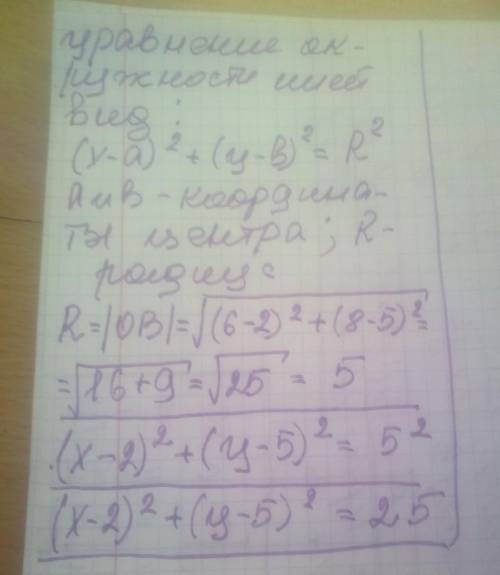 уравнение ок-
ружности имеет
вид:
(x-a)² + (y-в)² = R²
А и В - координа-
ты центра; R-
радиус
R=|OB|=√(6-2)² + (8-5)² =
=√16+9 = √25 = 5
(x-2)² + (y-5)² = 5²
(x-2)² + (y-5)² = 25